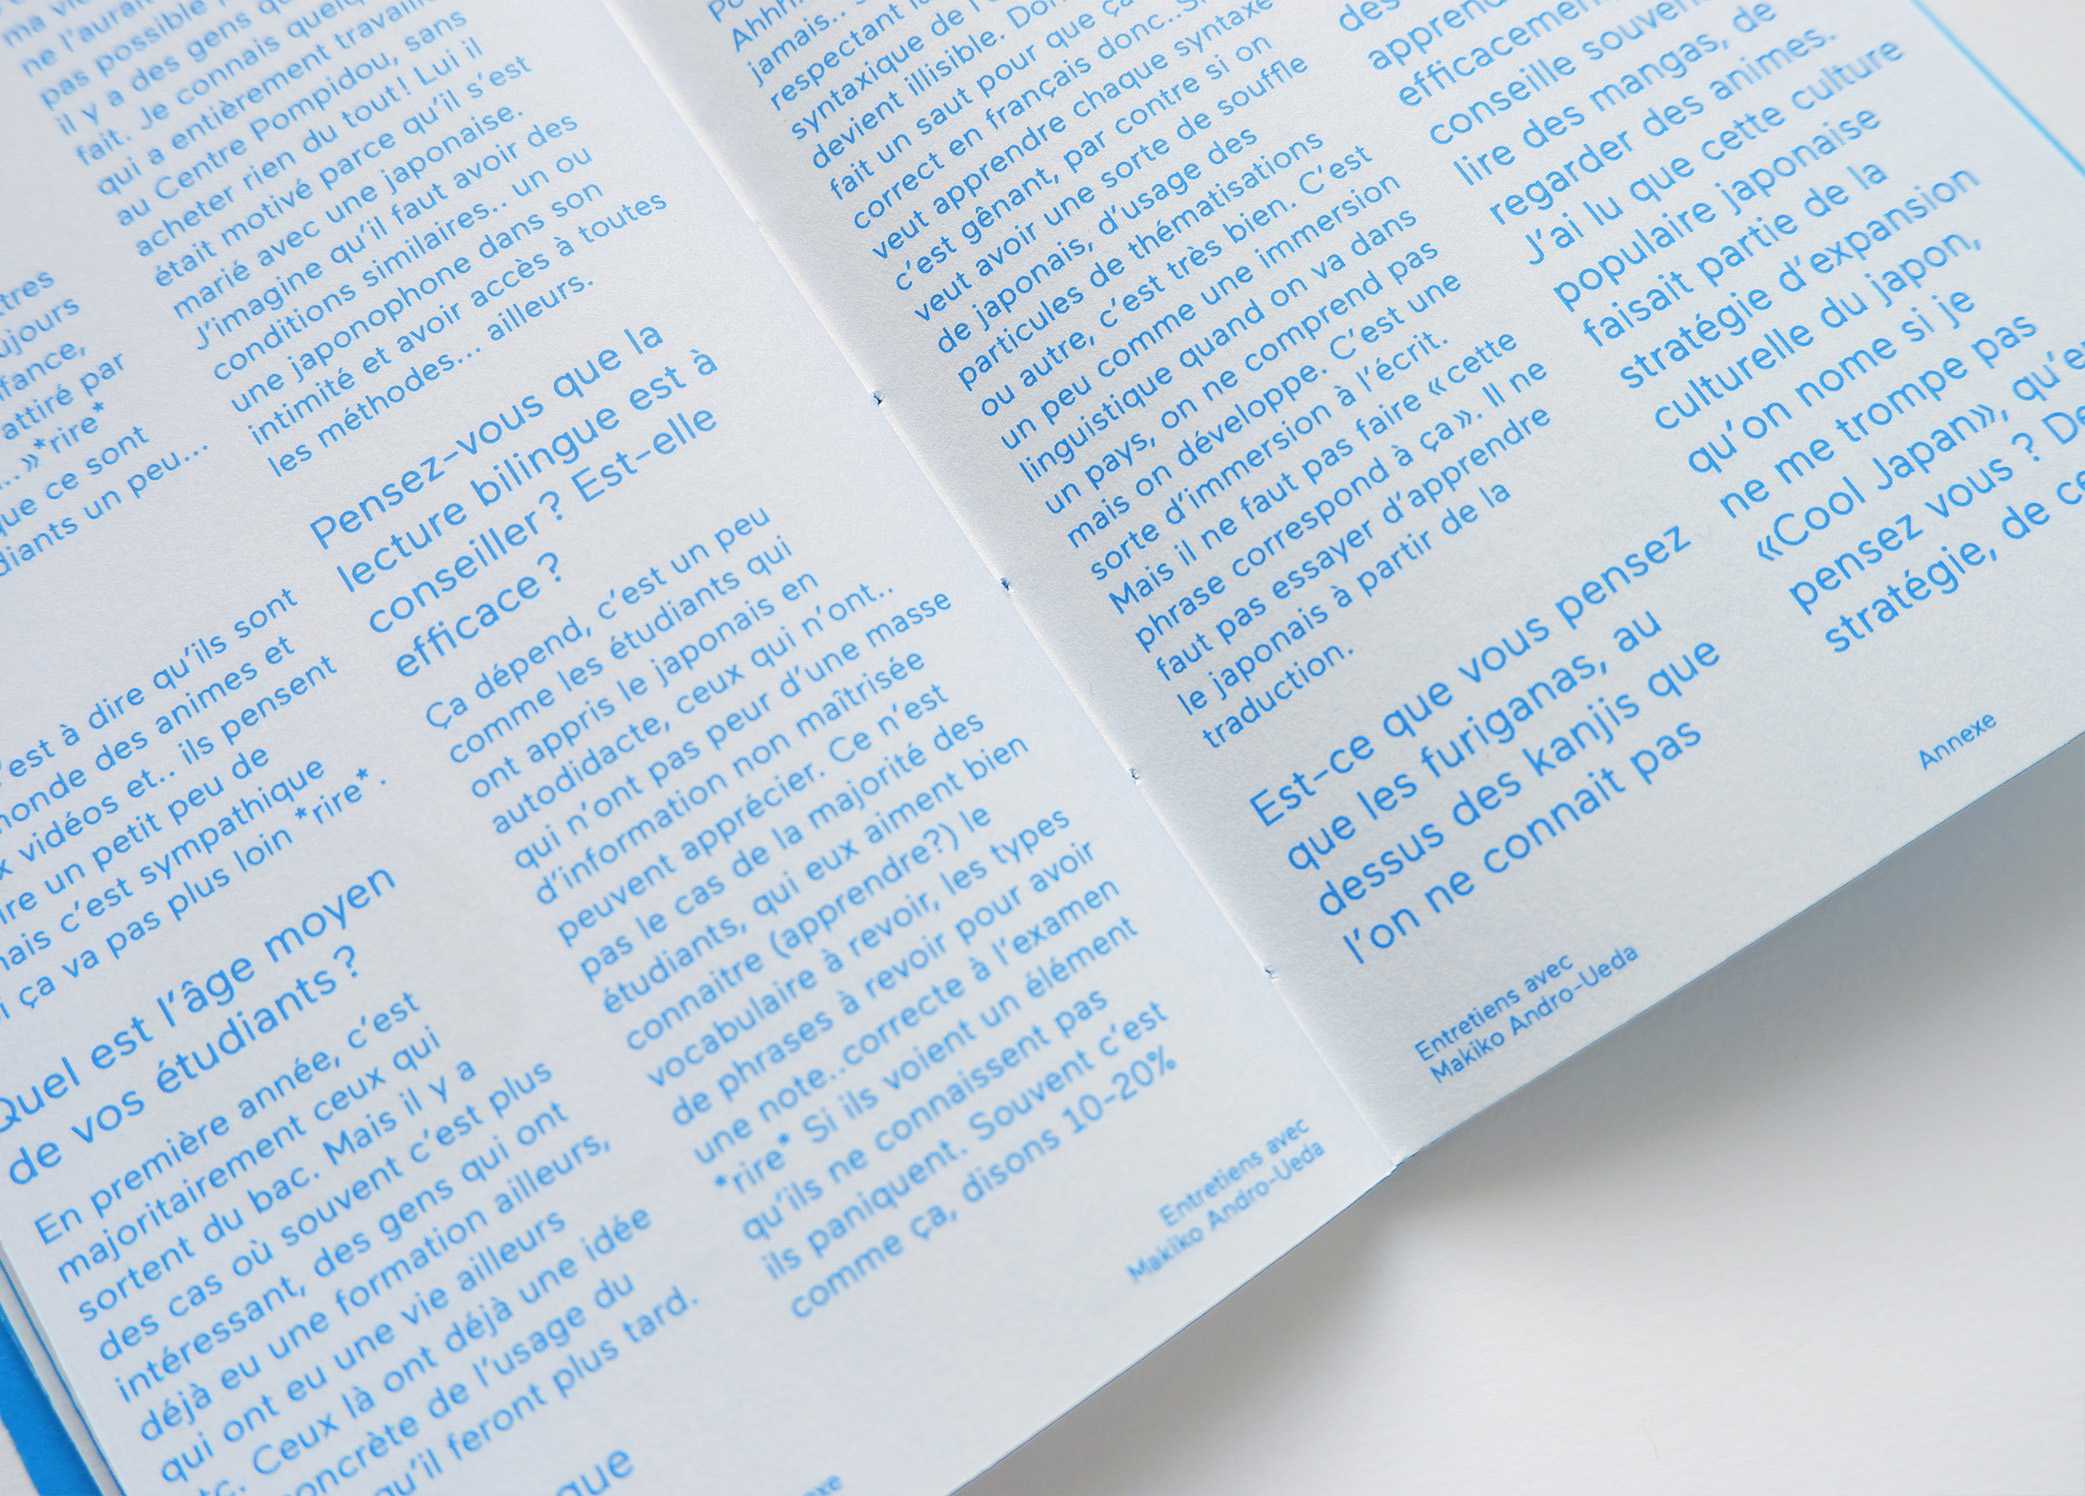 ma
ne l'aurait
pas possible
il y a des gens
fait. Je connais
qui a entièrement
au Centre Pompidou, sans
acheter rien du tout! Lui il
était motivé parce qu'il s'est
marié avec une japonaise.
J'imagine qu'il faut avoir des
conditions similaires.. un ou
une japonophone dans son
intimité et avoir accès à toutes
les méthodes... ailleurs.
attiré par
...» *rire*
que ce sont
un peu...
c'est à dire qu'ils sont
monde des animes et
vidéos et.. ils pensent
un petit peu de
mais c'est sympathique
ça va pas plus loin *rire*.
Quel est l'âge moyen
de vos étudiants ?
En première année, c'est
majoritairement ceux qui
sortent du bac. Mais il y a
des cas où souvent c'est plus
intéressant, des gens qui ont
déjà eu une formation ailleurs,
qui ont eu une vie ailleurs
etc. Ceux là ont déjà une idée
concrète de l'usage du
qu'il feront plus tard.
que
Pensez-vous que la
lecture bilingue est à
conseiller ? Est-elle
efficace ?
Ça dépend, c'est un peu
comme les étudiants qui
ont appris le japonais en
autodidacte, ceux qui n'ont..
qui n'ont pas peur d'une masse
d'information non maîtrisée
peuvent apprécier. Ce n'est
pas le cas de la majorité des
étudiants, qui eux aiment bien
connaitre (apprendre?) le
vocabulaire à revoir, les types
de phrases à revoir pour avoir
une note..correcte à l'examen
*rire* Si ils voient un élément
qu'ils ne connaissent pas
ils paniquent. Souvent c'est
comme ça, disons 10-20%
Entretiens avec
Makiko Andro-Ueda
jamais..
respectant
syntaxique de
devient illisible.
fait un saut pour que ça
correct en français donc..
veut apprendre chaque syntaxe
c'est gênant, par contre si on
veut avoir une sorte de souffle
de japonais, d'usage des
particules de thématisations
ou autre, c'est très bien. C'est
un peu comme une immersion
linguistique quand on va dans
un pays, on ne comprend pas
mais on développe. C'est une
sorte d'immersion à l'écrit.
Mais il ne faut pas faire «cette
phrase correspond à ça». Il ne
faut pas essayer d'apprendre
le japonais à partir de la
traduction.
Est-ce que vous pensez
que les furiganas, au
dessus des kanjis que
l'on ne connait pas
Entretiens avec
Makiko Andro-Ueda
des
efficacement
conseille
lire des mangas, de
regarder des animes.
J'ai lu que cette culture
populaire japonaise
faisait partie de la
stratégie d'expansion
culturelle du japon,
qu'on nome si je
ne me trompe pas
«Cool Japan»,
pensez vous ?
stratégie, de
Annexe